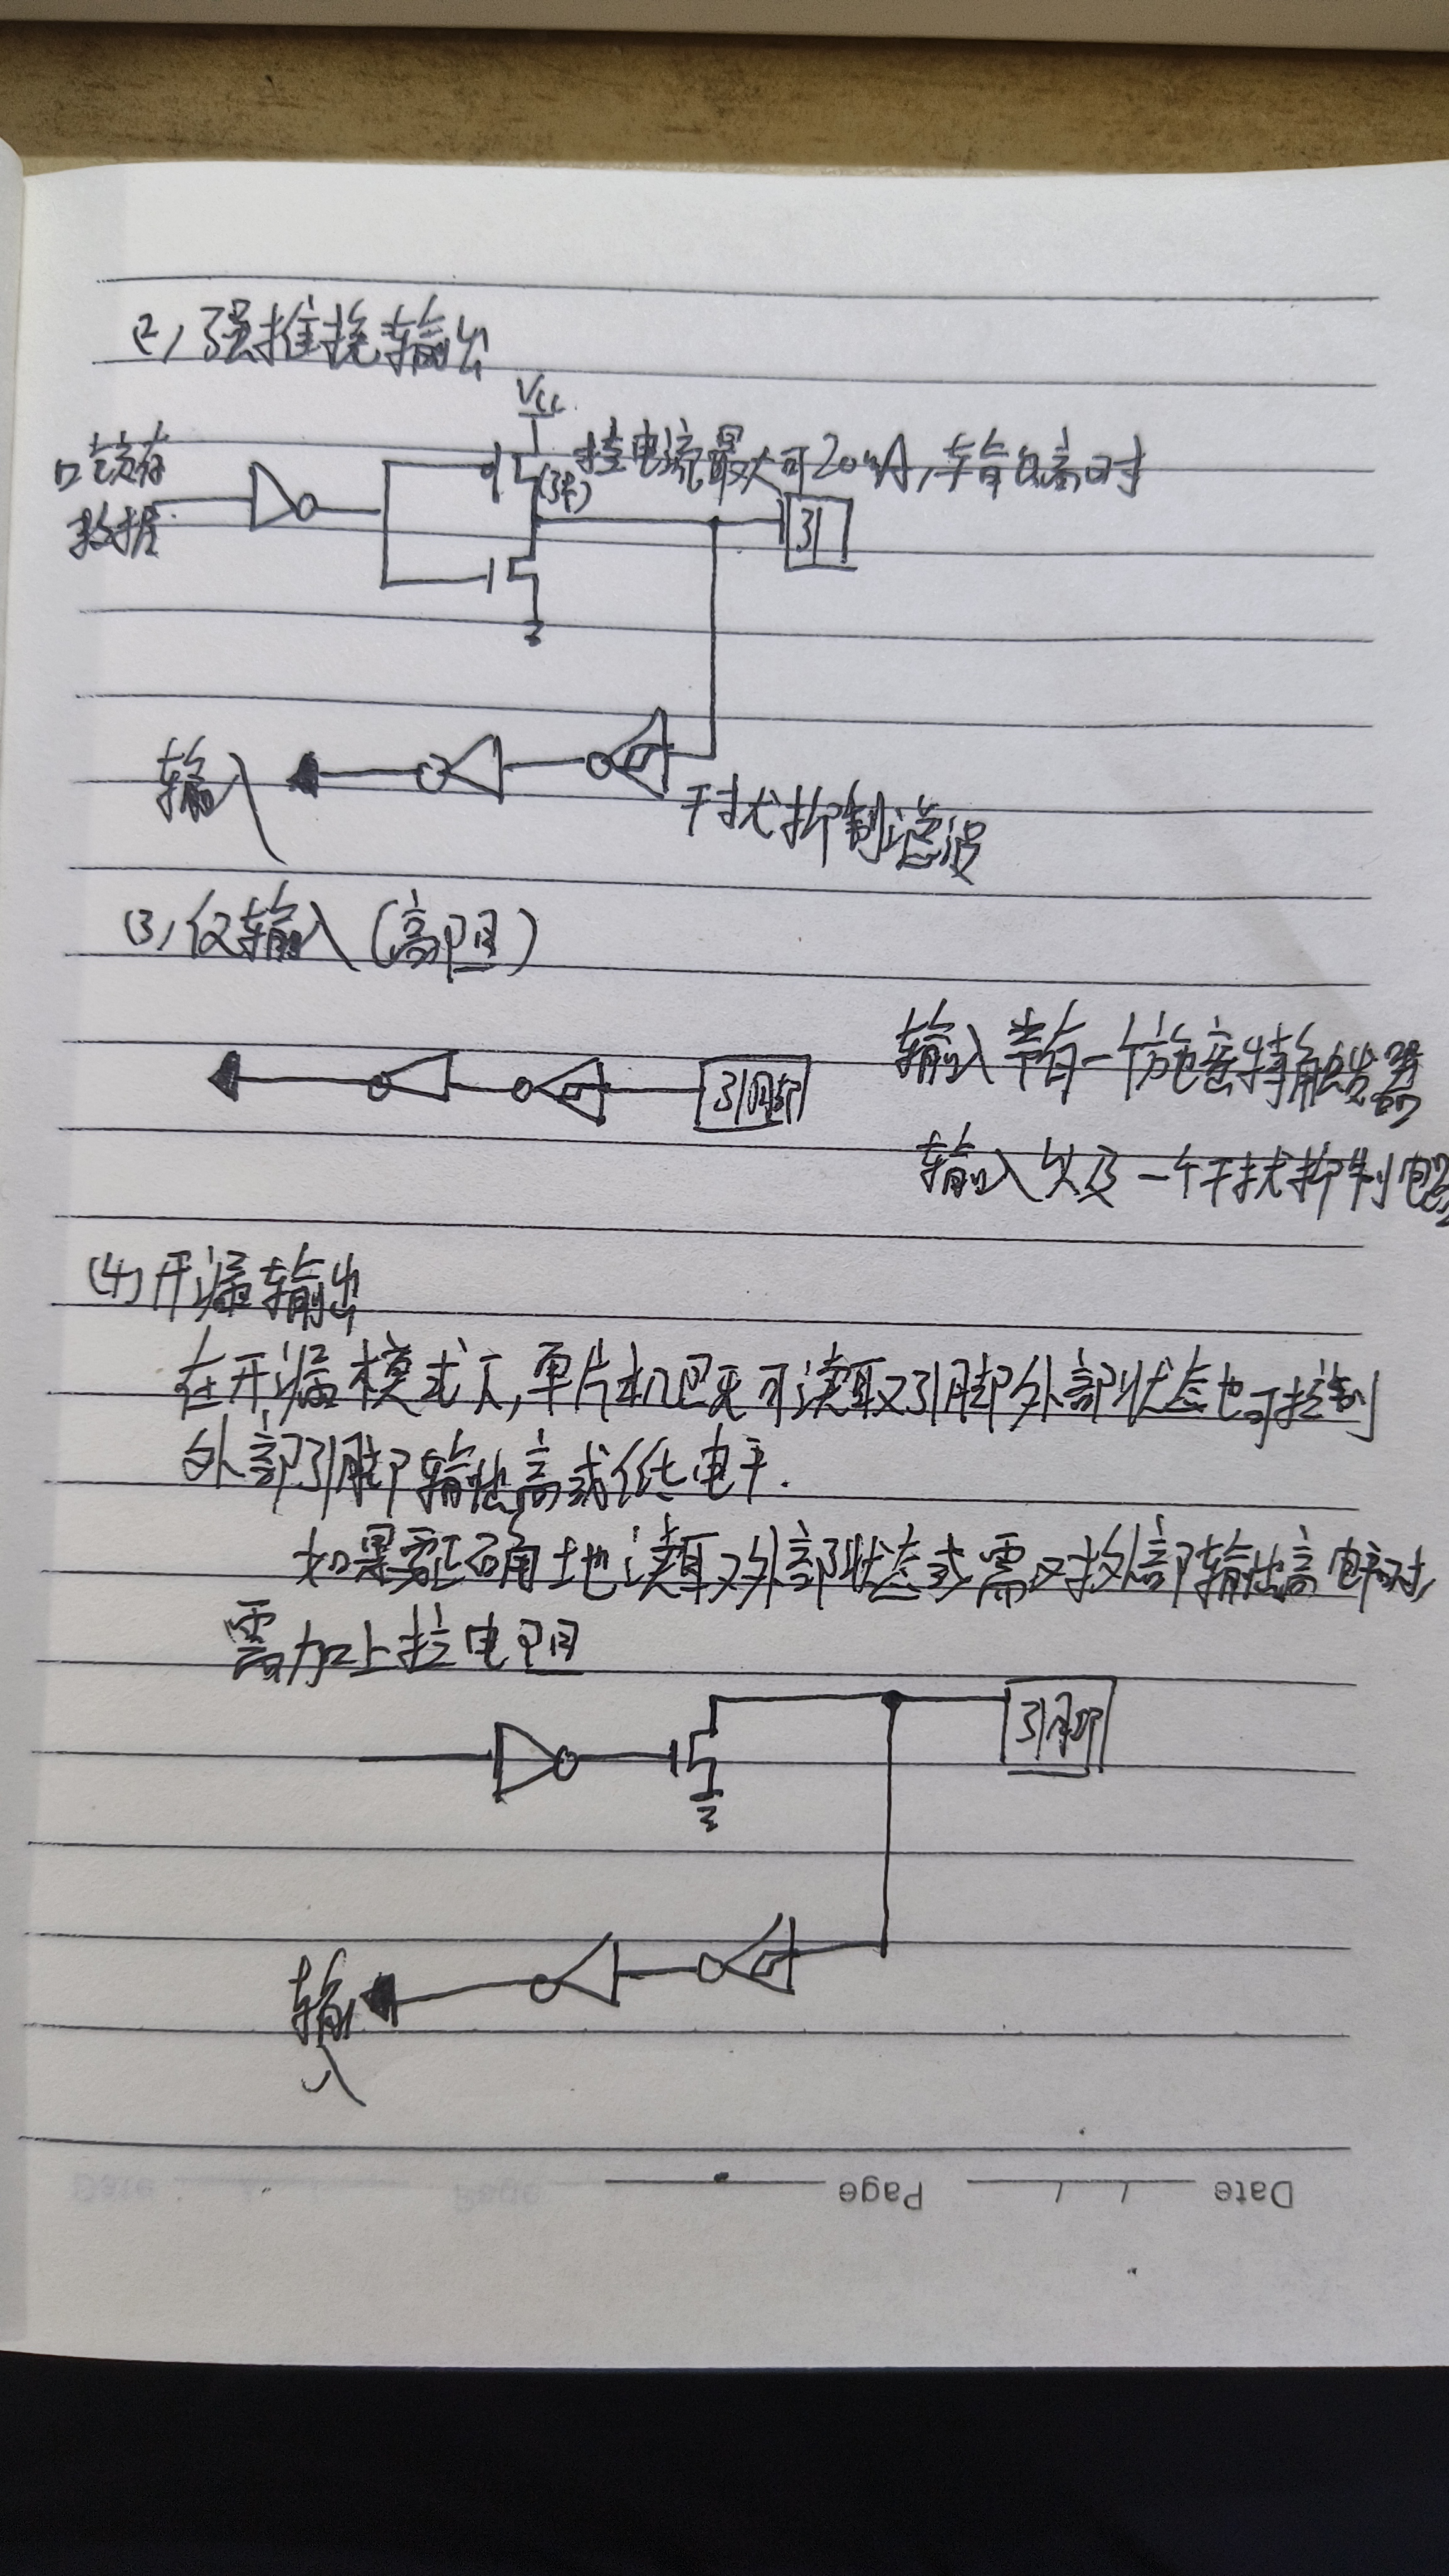 (2) 强推挽输出
Vcc
口锁存
数据
(强)
拉电流最大可20mA, 输出高时
引
输入
干扰抑制滤波
(3) 仅输入 (高阻)
引脚
输入带有一个施密特触发器
输入以及一个干扰抑制电路
(4) 开漏输出
在开漏模式下, 单片机既可读取引脚外部状态也可控制
外部引脚输出高或低电平.
如果要正确地读取外部状态或需要对外部输出高电平时,
需加上拉电阻
引脚
输
入
Page
Date